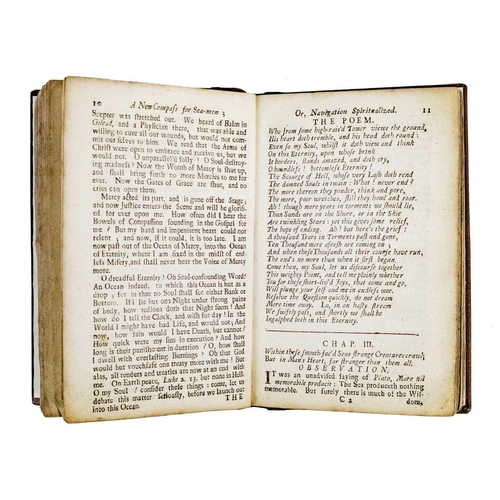 10 A New Compass for Sea-men;
Scepter was stretched out. We heard of Balm in
Gilead, and a Physician there, that was able and
willing to cure all our wounds, but would not com-
mit our selves to him. We read that the Arms of
Christ were open to embrace and receive us, but we
would not. O unparallel'd folly! O Soul-destroy-
ing madness! Now the Womb of Mercy is shut up,
and shall bring forth no more Mercies to me for
ever. Now the Gates of Grace are shut, and no
cries can open them.
Mercy acted its part, and is gone off the Stage;
and now Justice enters the Scene and will be glorifi-
ed for ever upon me. How often did I hear the
Bowels of Compassion sounding in the Gospel for
me? But my hard and impenitent heart could not
relent; and now, if it could, it is too late. I am
now past out of the Ocean of Mercy, into the Ocean
of Eternity, where I am fixed in the midst of end-
less Misery, and shall never hear the Voice of Mercy
more.
O dreadful Eternity! Oh Soul-confounding Word!
An Ocean indeed, to which this Ocean is but as a
drop; for in thee no Soul shall see either Bank or
Bottom. If I lie but one Night under strong pains
of body, how tedious doth that Night seem! And
how do I tell the Clock, and wish for day! In the
World I might have had Life, and would not; And
now, how fain would I have Death, but cannot!
How quick were my sins in execution? And how
long is their punishment in duration? O, how shall
I dwell with everlasting Burnings? Oh that God
would but vouchsafe one treaty more with me! But
alas, all tenders and treaties are now at an end with
On Earth peace, Luke 2. 13. but none in Hell.
O my Soul! consider these things; come, let us
debate this matter seriously, before we launch out
into this Ocean.
THE
Or, Navigation Spiritualized. 11
THE POEM.
Who from some high-rais'd Tower views the ground,
His heart doth tremble, and his head doth round;
Even so my Soul, whilst it doth view and think
On this Eternity, upon whose brink
It borders, stands amazed, and doth cry,
O boundless! bottomless Eternity!
The Scourge of Hell, whose very Lash doth rend
The damned Souls in twain: What! never end?
The more thereon they ponder, think and pore,
The more, poor wretches, still they howl and roar.
Ah! though more years in torments we should lie,
Than Sands are on the Shore, or in the Skie
Are twinkling Stars; yet this gives some relief,
The hope of ending. Ah! but here's the grief!
A thousand Years in Torments past and gone,
Ten Thousand more afresh are coming on;
And when these Thousands all their course have run,
The end's no more than when it first begun.
Come then, my Soul, let us discourse together
This weighty Point, and tell me plainly whether
You for these short-liv'd Joys, that come and go,
Will plunge your self and me in endless woe.
Resolve the Question quickly, do not dream
More time away. Lo, in an hasty stream
We swiftly pass, and shortly we shall be
Ingulphed both in this Eternity.
CHAP. III.
Within these smooth-fac'd Seas strange Creatures crawl;
But in Man's Heart, far stranger than them all.
OBSERVATION.
IT was an unadvised saying of Plato, Mare nil
memorabile producit: The Sea produceth nothing
memorable. But surely there is much of the Wis-
C 2 dom,